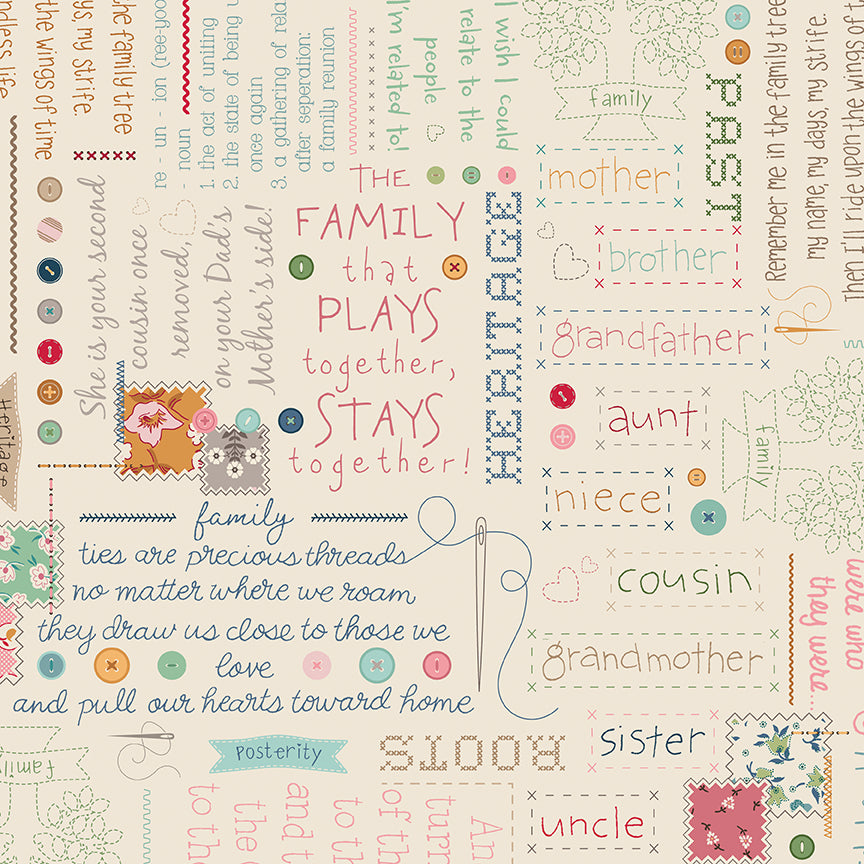 ndless life.
the wings of time
ys my strife.
the family tree
re - un - ion (ree-yoo
- noun
1. the act of uniting
2. the state of being u
once again
3. a gathering of rela
after seperation:
a family reunion
I wish I could
relate to the
people
I'm related to!
family
PAST
Remember me in the family tree
my name, my days, my strife.
Then I'll ride upon the wings of t
She is your second
cousin once
removed,
on your Dad's
Mother's side!
THE
FAMILY
that
PLAYS
together,
STAYS
together!
HERITAGE
mother
brother
grandfather
aunt
niece
cousin
grandmother
sister
uncle
family
Heritage
family
ties are precious threads
no matter where we roam
they draw us close to those we
love
and pull our hearts toward home
were who
they were...
family
Posterity
ROOTS
An
turn
of th
to th
and t
the
to th